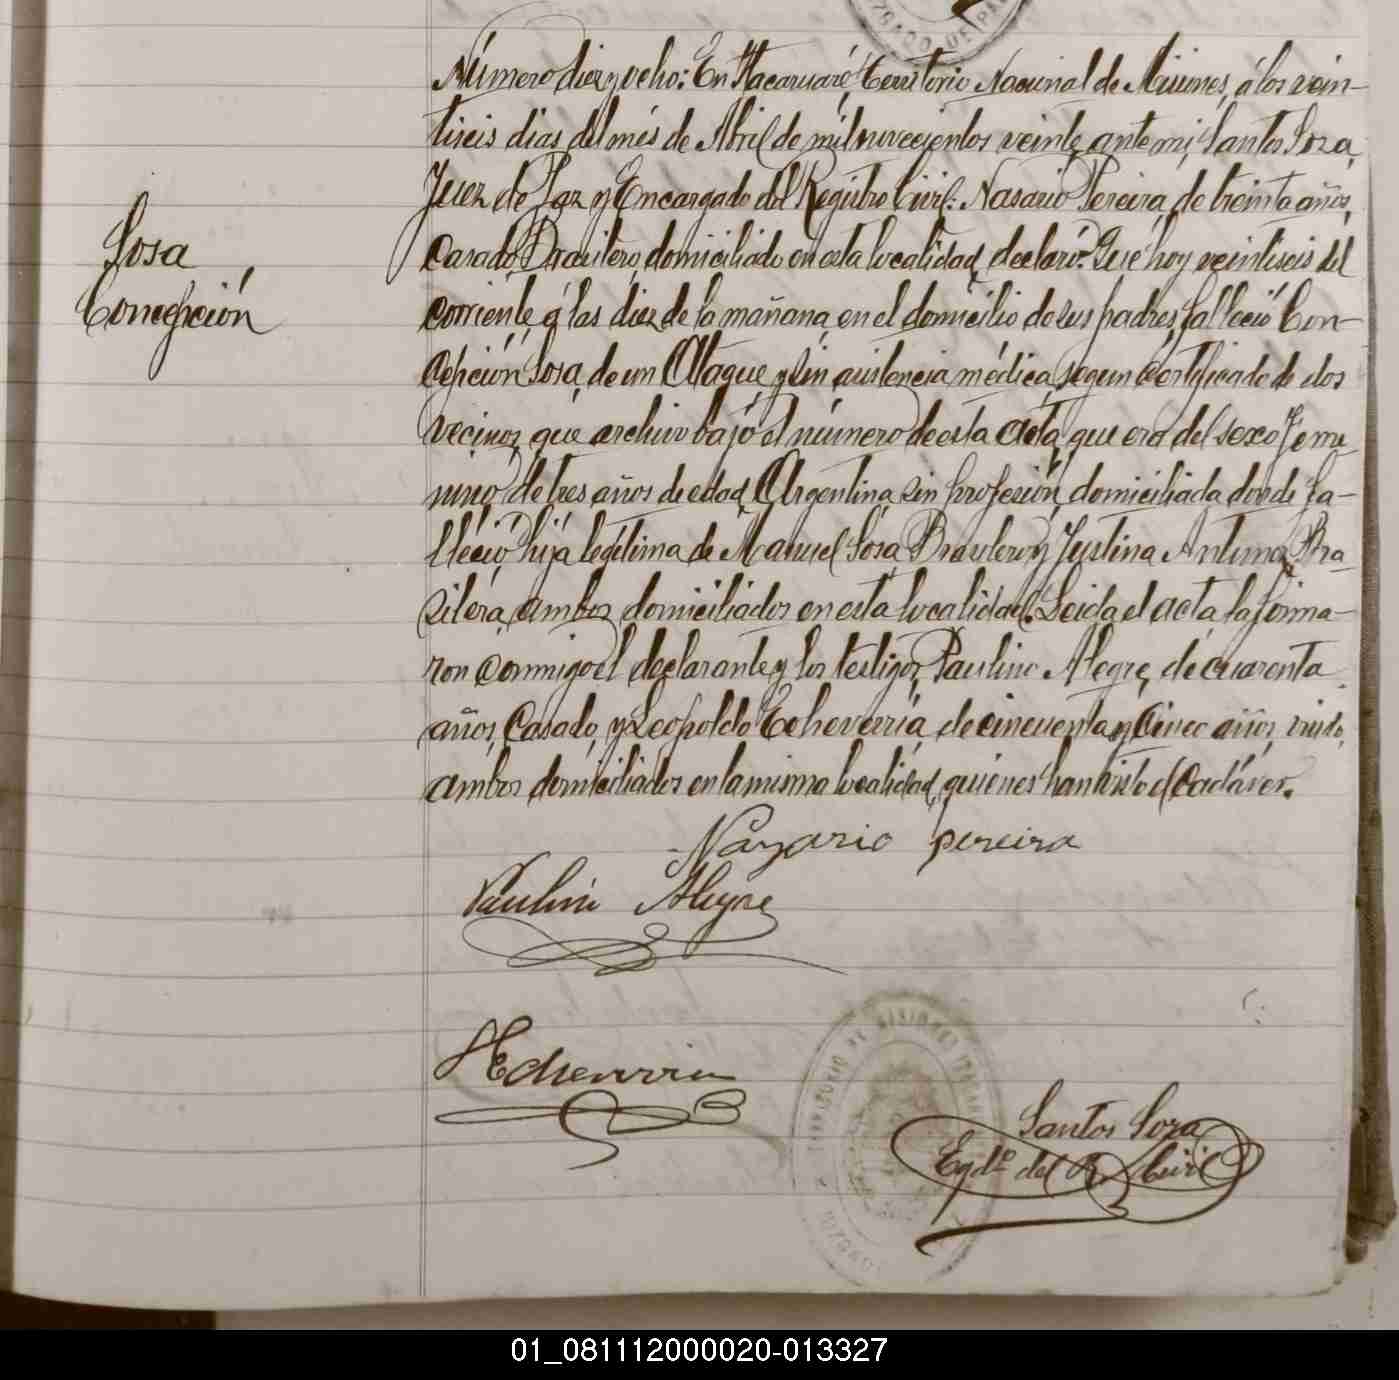 JUZGADO DE PA
Número diez y ocho: En Itacaruaré, Territorio Nacional de Misiones, á los vein-
tiseis dias del més de Abril de mil novecientos veinte, ante mi, Santos Soza,
Juez de Paz y Encargado del Registro Civil: Nasario Pereira, de treinta años,
Casado, Brasilero, domiciliado en esta localidad, declaró: Que hoy veintiseis del
Sosa
corriente, á las diez de la mañana, en el domicilio de sus padres, falleció Con-
Concepción
cepción Sosa, de un Ataque, y sin asistencia médica, segun certificado de dos
vecinos, que archivo bajo el número de esta acta, que era del sexo Feme
nino, de tres años de edad, Argentina, sin profesión, domiciliada donde fa-
lleció, hija legítima de Manuel Sosa, Brasilero y Justina Antunez, Bra-
silera, ambos domiciliados en esta localidad. Leida el acta la firma-
ron conmigo el declarante y los testigos, Paulino Alegre, de cuarenta
años, Casado, y Leopoldo Echeverría, de cincuenta y cinco años, viudo,
ambos domiciliados en la misma localidad, quienes han visto el cadáver.
Nazario pereira
Paulino Alegre
Echeverria
TERRITORIO DE MISIONES
JUZGADO
Santos Soza
Egdº del R. Civil
01_081112000020-013327